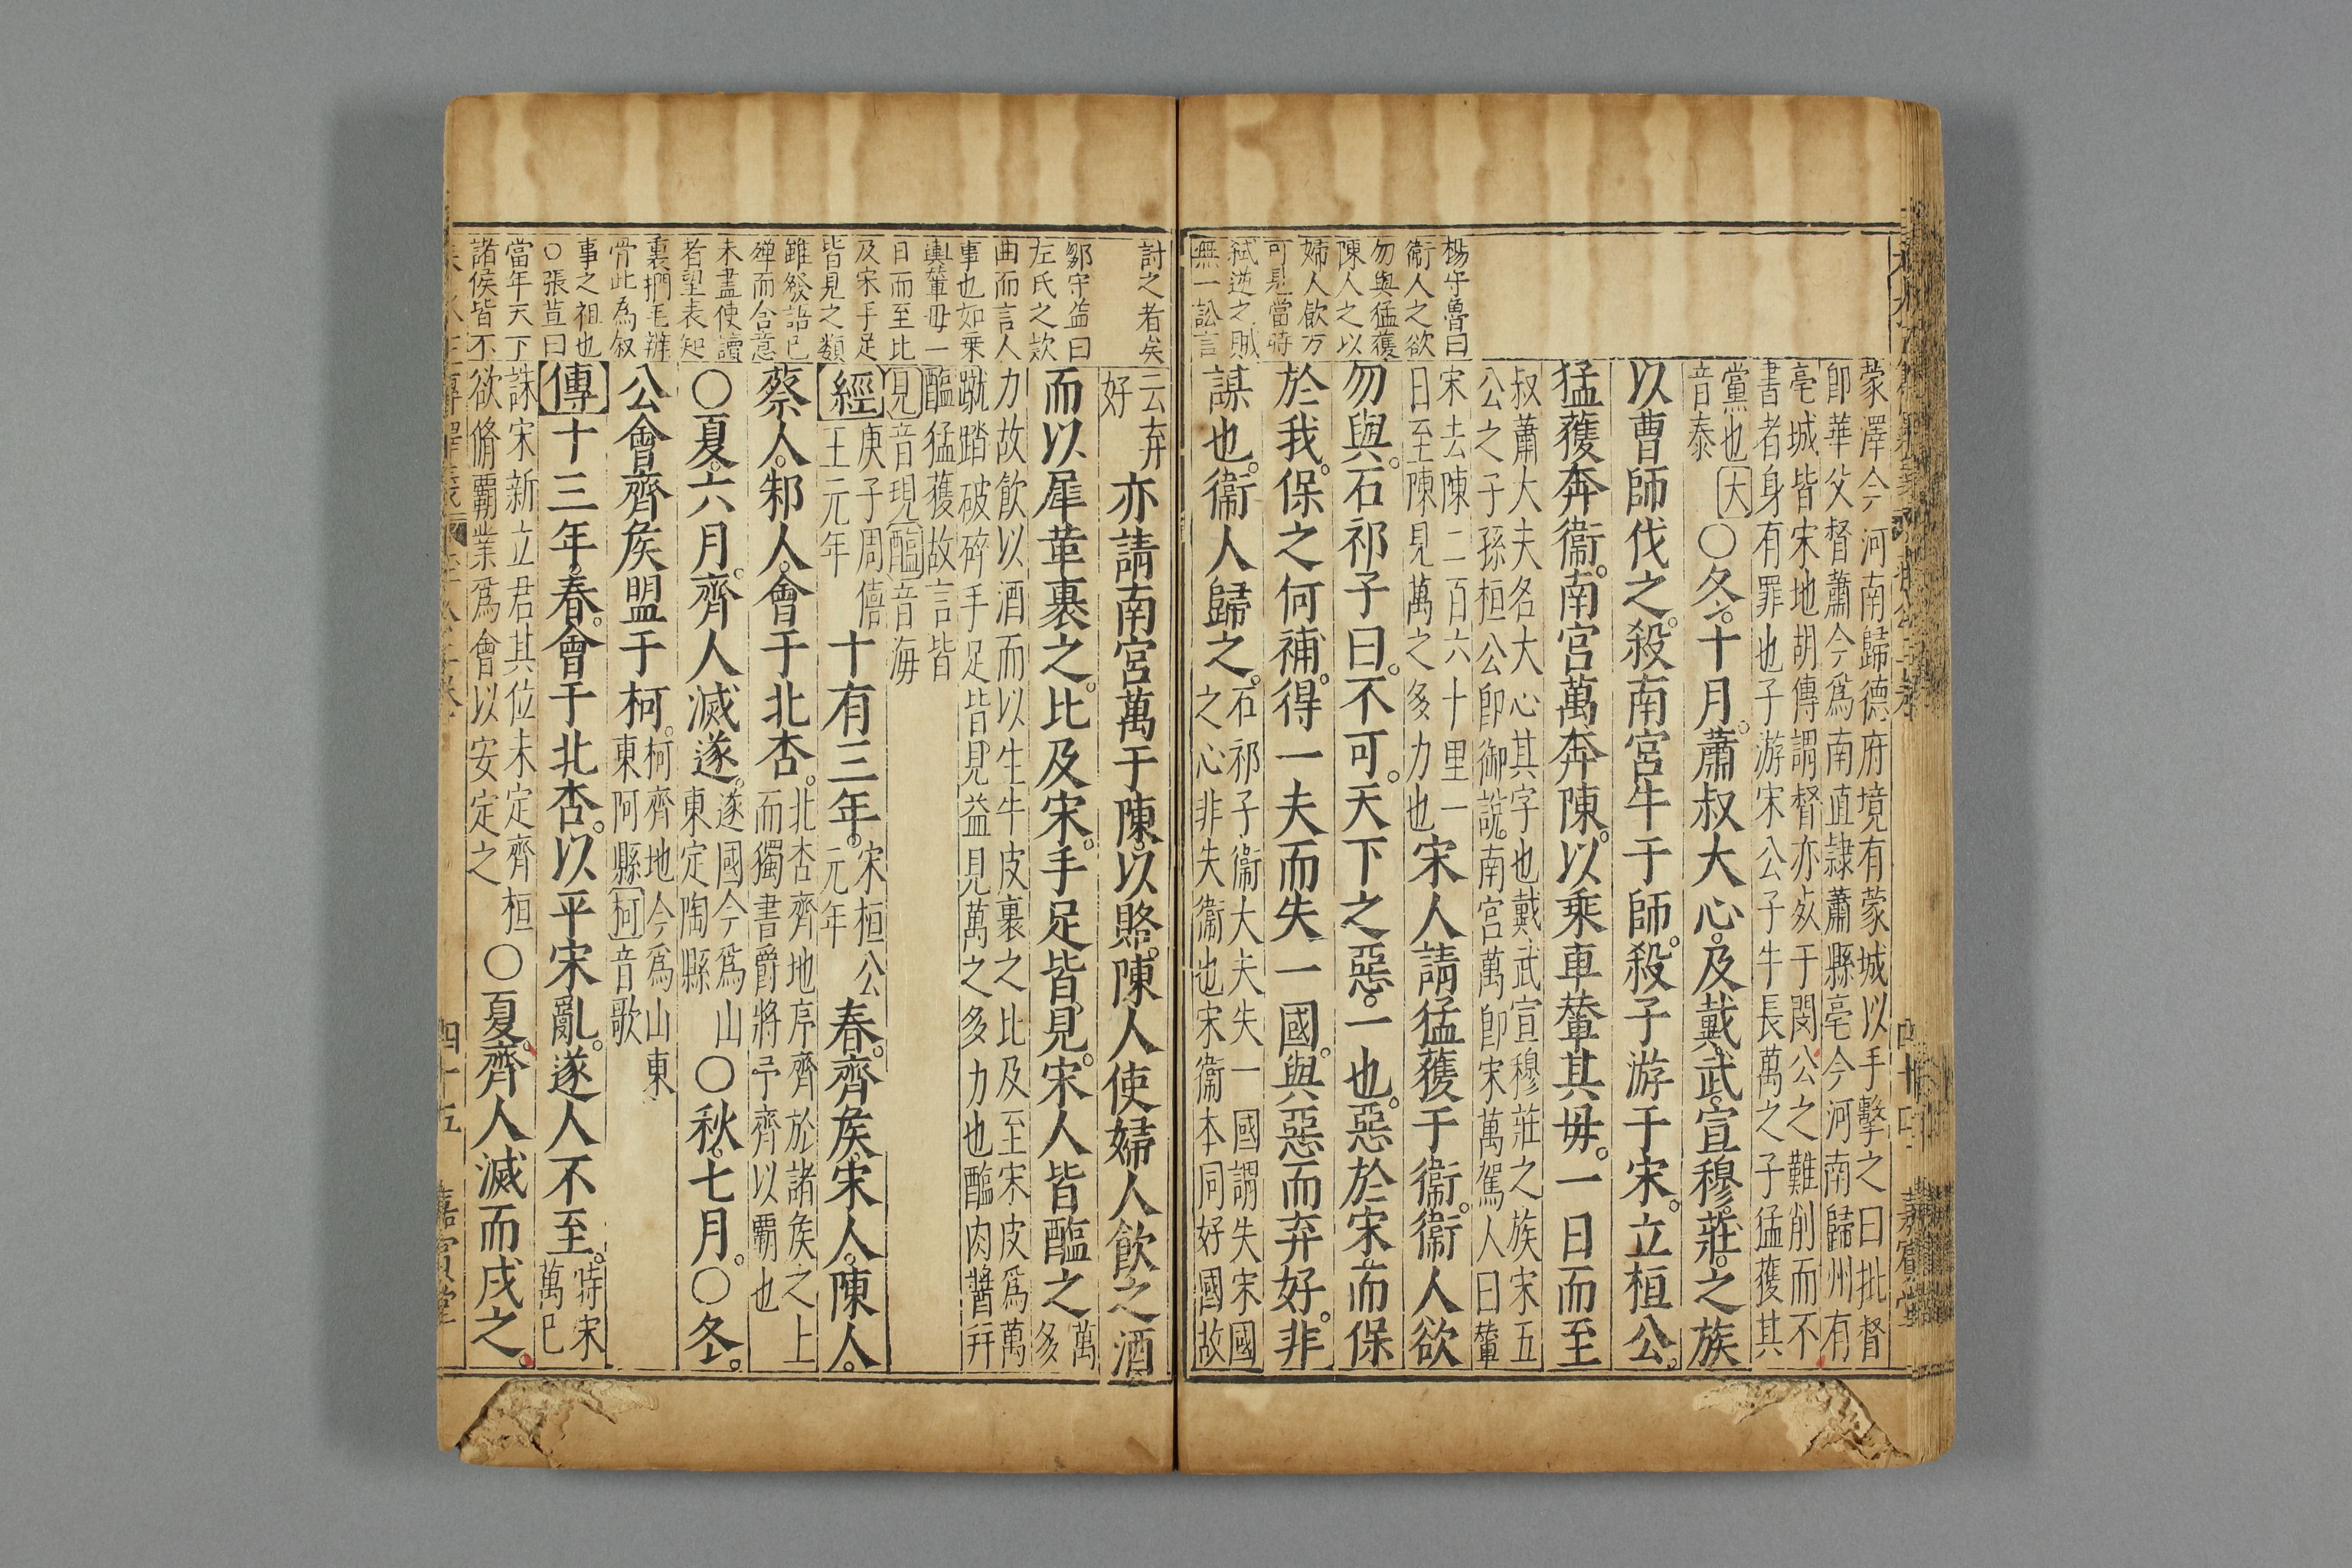 蒙澤今河南歸德府境有蒙城以手擊之曰批督
卽華父督蕭今爲南直隷蕭縣亳今河南歸州有
亳城皆宋地胡傳謂督亦死于閔公之難削而不
書者身有罪也子游宋公子牛長萬之子猛獲其
黨也大
音泰
○冬十月蕭叔大心及戴武宣穆莊之族
以曹師伐之殺南宮牛于師殺子游于宋立桓公
猛獲奔衞南宮萬奔陳以乘車輦其母一日而至
叔蕭大夫名大心其字也戴武宣穆莊之族宋五
公之子孫桓公卽御說南宮萬卽宋萬駕人曰輦
宋去陳二百六十里一
日至陳見萬之多力也
宋人請猛獲于衞衞人欲
勿與石祁子曰不可天下之惡一也惡於宋而保
於我保之何補得一夫而失一國與惡而弃好非
謀也衞人歸之
石祁子衞大夫失一國謂失宋國
之心非失衞也宋衞本同好國故
楊守魯曰
衞人之欲
勿與猛獲
陳人之以
婦人飮万
可見當時
弑逆之賊
無一訟言
四十四
嘉賓堂
討之者矣
鄒守益曰
左氏之款
曲而言人
事也如乘
輿輦母一
日而至比
及宋手足
皆見之類
雖發語已
殫而含意
未盡使讀
者望表知
裏捫毛辨
骨此爲叙
事之祖也
○張荁曰
當年天下
諸侯皆不
云弃
好
亦請南宮萬于陳以賂陳人使婦人飮之酒
而以犀革裹之比及宋手足皆見宋人皆醢之
萬
多
力故飮以酒而以生牛皮裹之比及至宋皮爲萬
蹴踏破碎手足皆見益見萬之多力也醢肉醬幷
醢猛獲故言皆
見音現醢音海
經
庚子周僖
王元年
十有三年
宋桓公
元年
春齊矦宋人陳人
蔡人邾人會于北杏
北杏齊地序齊於諸矦之上
而獨書爵將予齊以覇也
○夏六月齊人滅遂
遂國今爲山
東定陶縣
○秋七月○冬
公會齊矦盟于柯
柯齊地今爲山東
東阿縣柯音歌
傳十三年春會于北杏以平宋亂遂人不至
時宋
萬已
誅宋新立君其位未定齊桓
欲脩覇業爲會以安定之
○夏齊人滅而戍之
四十五
嘉賓堂